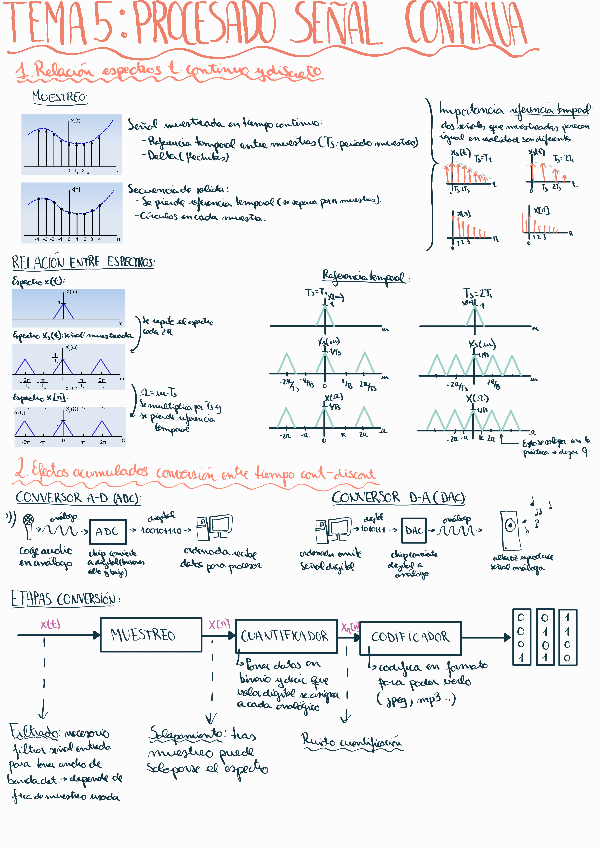 TEMA 5: PROCESADO SEÑAL CONTINUA
1. Relación espectros t. continuo y discreto
MUESTREO:
Señal muestreada en tiempo continuo:
- Referencia temporal entre muestras (Ts: periodo muestreo)
- Deltas (flechitas)
Secuencia de salida:
- Se pierde referencia temporal (se separa por n muestras).
- Círculos en cada muestra.
Importancia referencia temporal
dos señales que muestreadas parecen
igual en realidad son diferente
Xs(t) Ts=T1
Ts 2Ts
Xs(t) Ts=2T1
Ts 2Ts
X[n]
0 1 2 3 n
X[n]
0 n
RELACIÓN ENTRE ESPECTROS:
Espectro x(t):
Se repite el espectro
cada 2π
Espectro Xs(t): señal muestreada
Espectro X[n]:
Ω = ω·Ts
Se multiplica por Ts y
se pierde referencia
temporal
Referencia temporal:
Ts=T1
X(ω)
1
ω
Xs(ω)
1/Ts
ω
X(Ω)
1/Ts
-2π -π 0 π 2π
Ts=2T1
X(ω)
1
ω
Xs(ω)
1/Ts
ω
X(Ω)
1/Ts
-2π -π 0 π 2π
2. Efectos acumulados conversión entre tiempo cont-discont
CONVERSOR A-D (ADC):
análogo
ADC
digital
10101110
Coge audio
en análogo
chip convierte
a digital
ordenador recibe
datos para procesar
CONVERSOR D-A (DAC)
digital
101011
DAC
análogo
ordenador emite
señal digital
chip convierte
digital a
análogo
altavoz reproduce
señal análoga
ETAPAS CONVERSIÓN:
x(t)
MUESTREO
X[n]
CUANTIFICADOR
CODIFICADOR
0 0 1
0 1 1
0 1 0
1 0 0
Poner datos en
binario y decir que
valor digital se asigna
a cada analógico
codifica en formato
para poder verlo
(jpeg, mp3...)
Filtrado: necesario
filtrar señal entrada
para tener ancho de
banda det → depende de
frec de muestreo usada
Solapamiento: tras
muestreo puede
solaparse el espectro
Ruido cuantificación